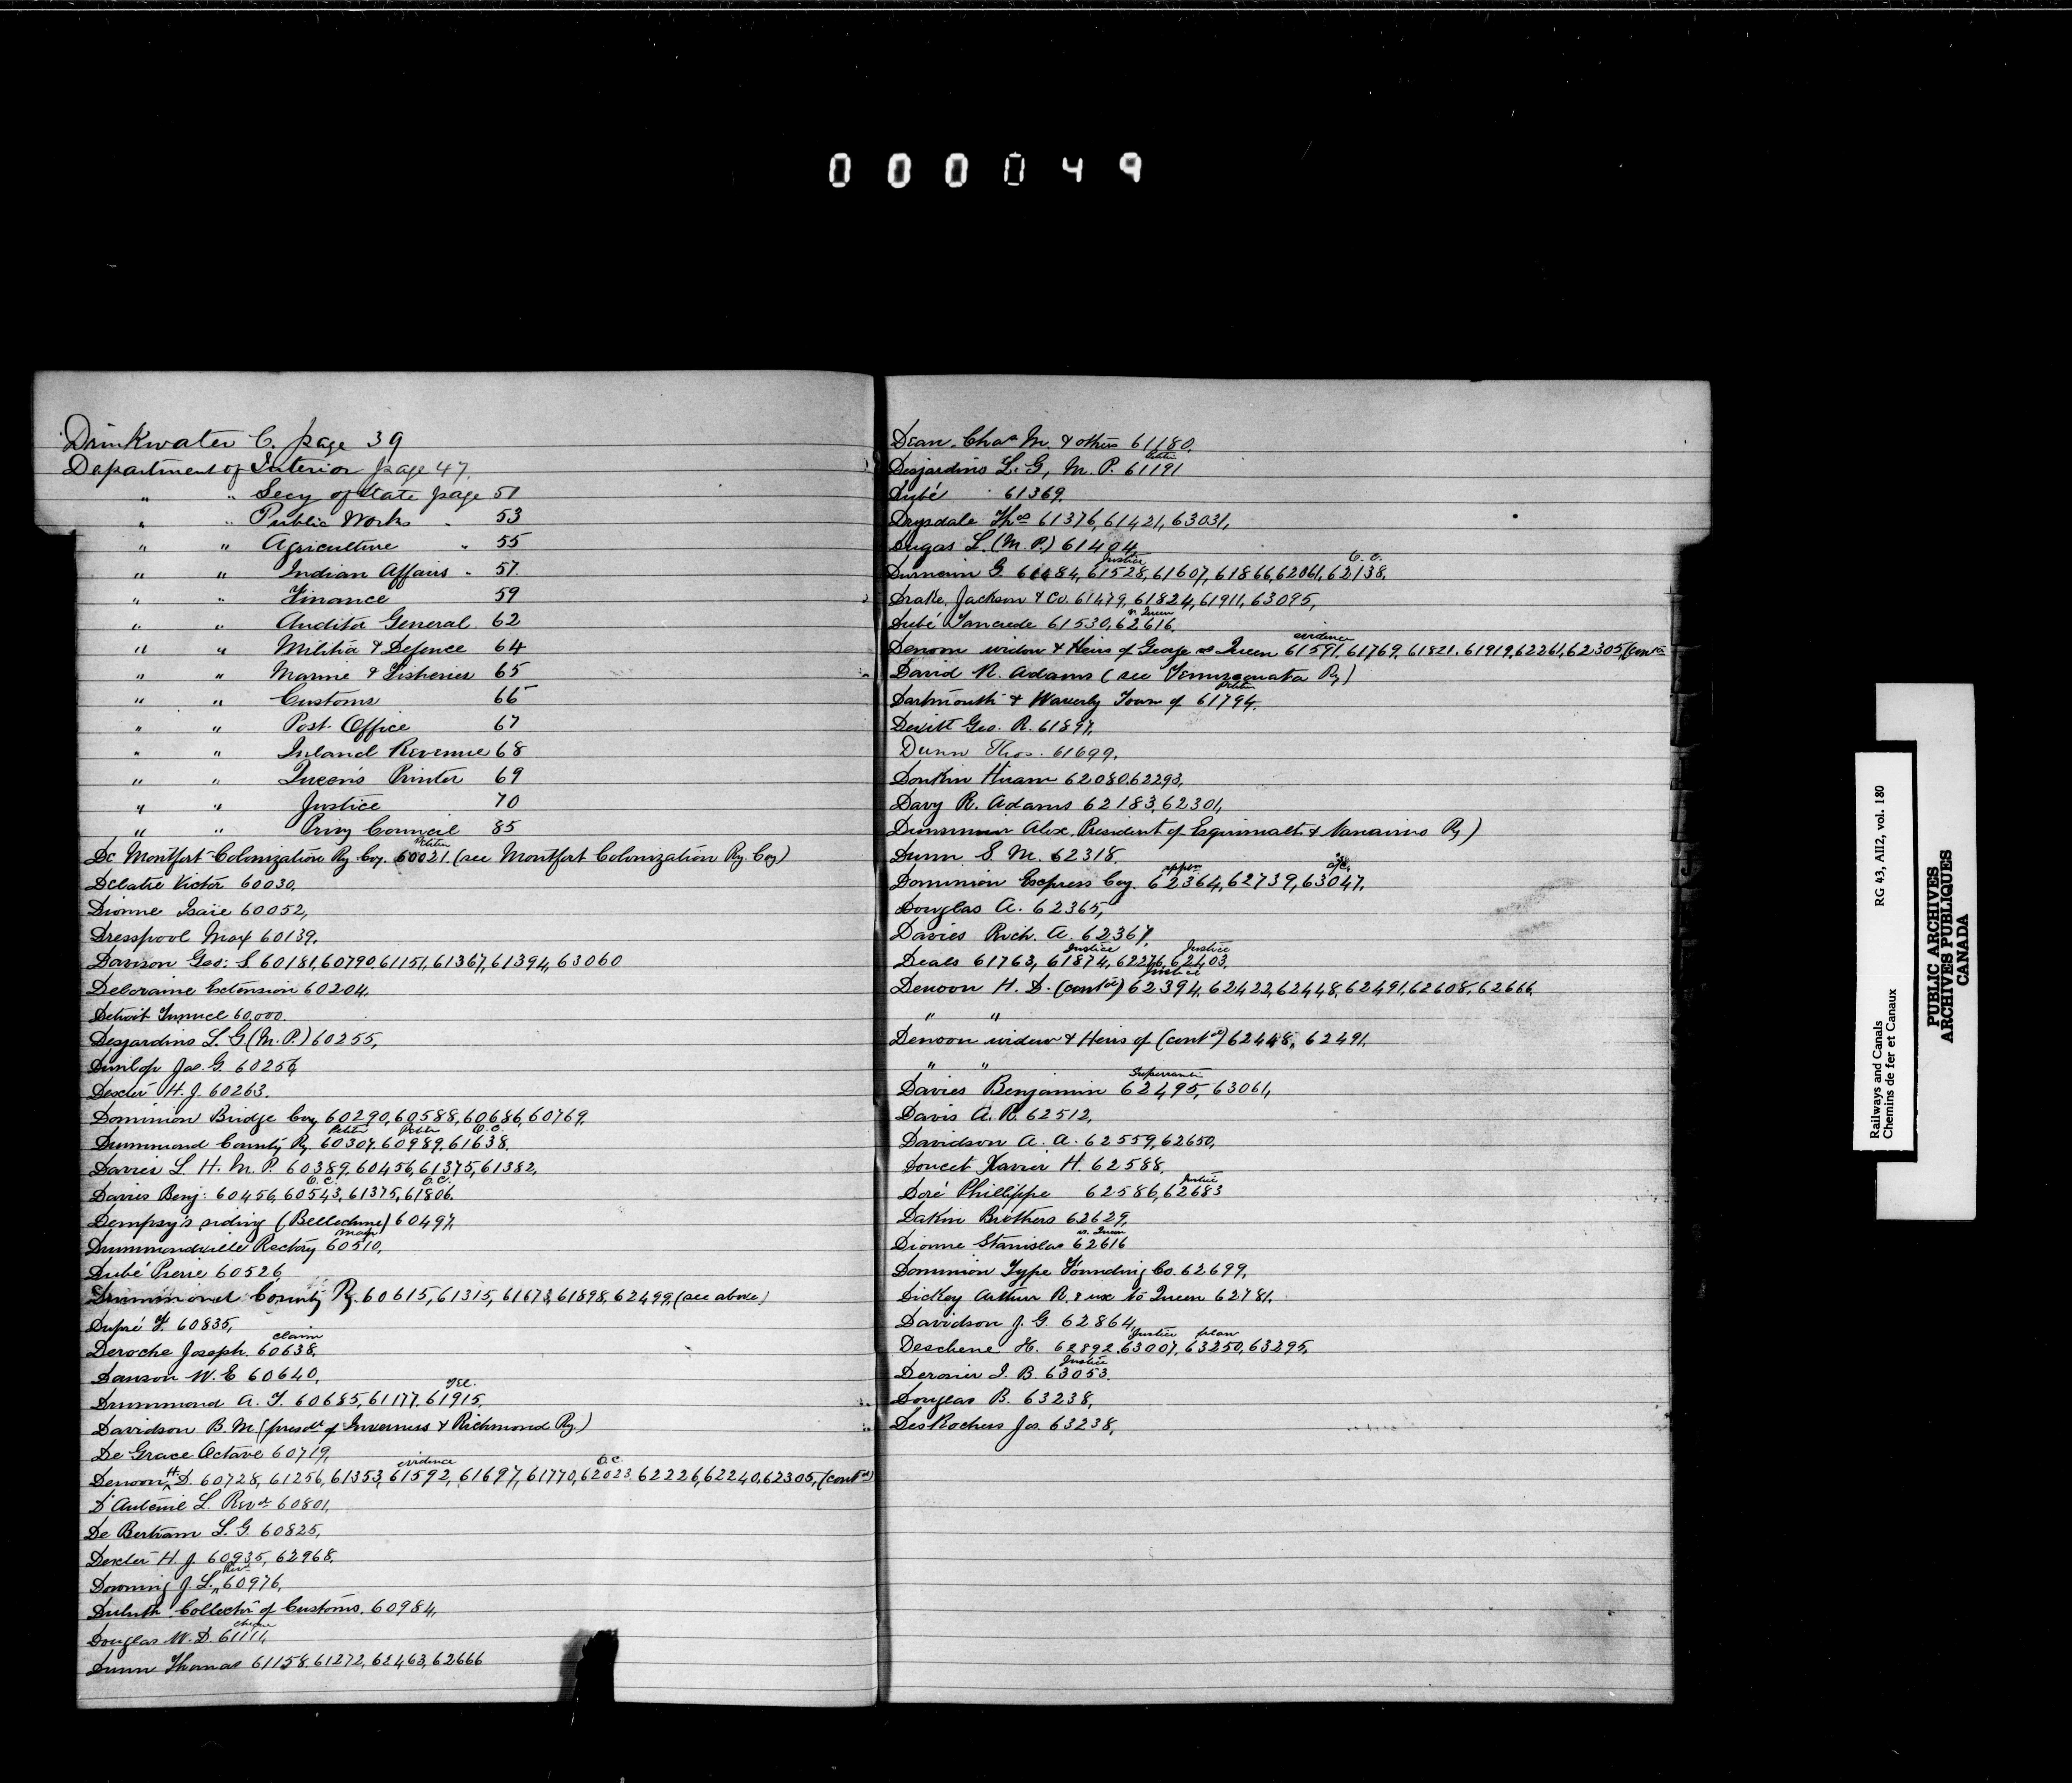 000049
Drinkwater C. page 39
Department of Interior page 47.
" " Secy of State page 51
" " Public Works " 53
" " Agriculture " 55
" " Indian Affairs " 57.
" " Finance 59
" " Auditor General 62
" " Militia & Defence 64
" " Marine & Fisheries 65
" " Customs 66
" " Post Office 67
" " Inland Revenue 68
" " Queen's Printer 69
" " Justice 70
" " Privy Council 85
Petition
De Montfort Colonization Ry Coy. 60021. (see Montfort Colonization Ry. Coy)
Delatre Victor 60030,
Dionne Isaïe 60052,
Dresspool Max 60139.
Davison Geo: S. 60181, 60790, 61151, 61367, 61394, 63060
Deloraine Extension 60204.
Detroit Tunnel 60,000.
Desjardins L. G (M. P.) 60255,
Dunlop Jas. G. 60256,
Dexter H. J. 60263.
Dominion Bridge Coy, 60290, 60588, 60686, 60769,
Petition Petition O.C.
Drummond County Ry. 60307, 60989, 61638.
Davies L. H. M. P. 60389, 60456, 61375, 61382,
O.C. O.C.
Davies Benj: 60456, 60543, 61375, 61806.
Dempsy's siding (Belledune) 60497,
Drummondville Rectory 60510,
Dubé Pierre 60526
Drummond County Ry. 60615, 61315, 61673, 61898, 62499, (see above)
Dupré F. 60835,
claim
Deroche Joseph. 60638.
Dawson W. E 60640,
Drummond A. T. 60685, 61177, 61915.
Davidson B. M (presdt. of Inverness & Richmond Ry.)
De Grace Octave 60719,
evidence O.C.
Denoon H. D. 60728, 61256, 61353, 61592, 61697, 61770, 62023, 62226, 62240, 62305, (contd)
D'Auteuil L. Revd. 60801,
De Bertram L. G. 60825,
Dexter H. J. 60935, 62968.
Revd
Downing J. L. 60976,
Duluth Collector of Customs. 60984,
cheque
Douglas W. D. 61111,
Dunn Thomas 61158, 61272, 62463, 62666
Dean, Chas M. & others 61180.
Petition
Desjardins L. G, M. P. 61191
Dubé 61369.
Drysdale Thos 61376, 61421, 63031,
Dugas L. (M. P.) 61404
Justice O. C.
G. 61528, 61607, 61866, 62061, 62138.
Drake, Jackson & Co. 61479, 61824, 61911, 63095,
vs. Queen
Dubé Tancrede 61530, 62616.
evidence
Denoon widow & Heirs of George vs Queen 61591, 61769, 61821, 61919, 62261, 62305 (contd
David R. Adams (see Temiscouata Ry)
Petition
Dartmouth & Waverly Town of 61794.
Dewitt Geo. R. 61897,
Dunn Thos. 61699,
Donkin Hiram 62080, 62293,
Davy R. Adams 62183, 62301,
Dunsmuir Alex. President of Esquimalt & Nanaimo Ry)
Dunn S. M. 62318.
Dominion Express Coy. 62364, 62739, 63047.
Douglas A. 62365,
Davies Rich. A. 62367,
Justice Justice
Deals 61763, 61874, 62276, 62403.
Justice
Denoon H. D. (contd) 62394, 62422, 62448, 62491, 62608, 62666.
" "
Denoon widow & Heirs of (contd) 62448, 62491.
" "
Davies Benjamin 62495, 63061,
Davis A. R. 62512,
Davidson A. A. 62559, 62650,
Doucet Xavier H. 62588,
Justice
Doré Phillippe 62586, 62683
Dakin Brothers 62629,
vs. Queen
Dionne Stanislas 62616
Dominion Type Founding Co. 62699,
Dickey Arthur R. & ux vs Queen 62781.
Davidson J. G. 62864,
Justice plan
Deschene H. 62892, 63007, 63250, 63295,
Justice
Derosier J. B. 63053.
Douglas B. 63238,
DesRochers Jos. 63238,
Railways and Canals RG 43, AII2, vol. 180
Chemins de fer et Canaux
PUBLIC ARCHIVES
ARCHIVES PUBLIQUES
CANADA